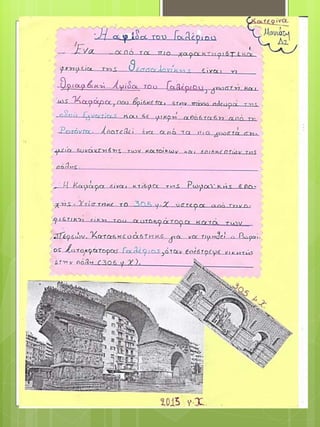 Κατερίνα
Δ2
Η αψίδα του Γαλέριου
Ένα από τα πιο χαρακτηριστικά
μνημεία της Θεσσαλονίκης είναι η
Θριαμβική Αψίδα του Γαλέριου, γνωστή και
ως Καμάρα, που βρίσκεται στην πάνω πλευρά της
οδού Εγνατίας και σε μικρή απόσταση από τη
Ροτόντα. Αποτελεί ένα από τα πιο γνωστά ση-
μεία συνάντησης των κατοίκων και επισκεπτών της
πόλης.
Η Καμάρα είναι κτίσμα της Ρωμαϊκής επο-
χής. Χτίστηκε το 305 μ.Χ ύστερα από την ο-
ριστική νίκη του αυτοκράτορα κατά των
Περσών. Κατασκευάστηκε για να τιμηθεί ο Ρωμαί-
ος Αυτοκράτορας Γαλέριος, όταν επέστρεψε νικητής
στην πόλη (306 μ.Χ).
305 μ.Χ
2015 μ.Χ